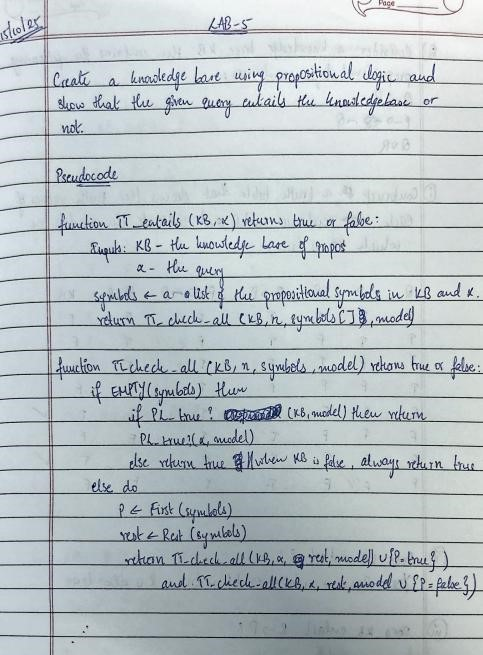 Page
15/10/25
LAB-5
Create a knowledge base using propositional logic and
show that the given query entails the knowledgebase or
not.
Pseudocode
function TT_entails (KB, α) returns true or false:
Inputs: KB - the knowledge base of propos
α - the query
symbols ← a list of the propositional symbols in KB and α.
return TT_check_all (KB, n, symbols [], model)
function TTcheck_all (KB, n, symbols, model) returns true or false:
if EMPTY(symbols) then
if PL_true? (KB, model) then return
PL_true?(α, model)
else return true // when KB is false, always return true
else do
P ← First (symbols)
rest ← Rest (symbols)
return TT-check_all (KB, α, rest, model) ∪ {P=true})
and TT-check-all (KB, α, rest, model ∪ {P=false})